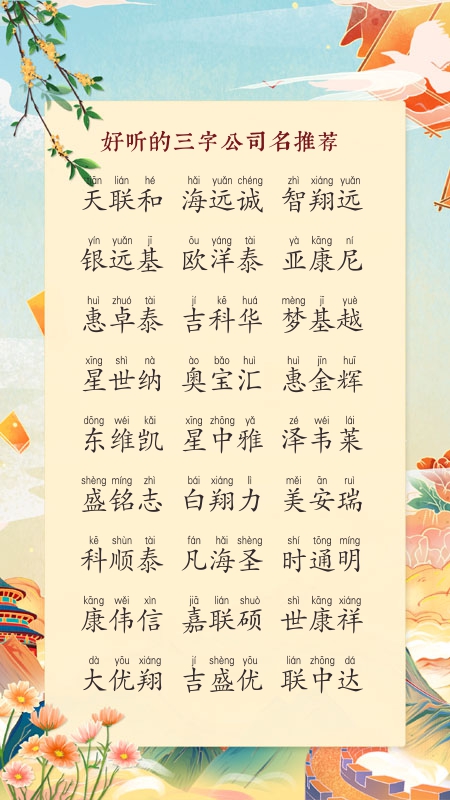 好听的三字公司名推荐
tiān lián hé hǎi yuǎn chéng zhì xiáng yuǎn
天联和 海远诚 智翔远
yín yuǎn jī ōu yáng tài yà kāng ní
银远基 欧洋泰 亚康尼
huì zhuó tài jí kē huá mèng jī yuè
惠卓泰 吉科华 梦基越
xīng shì nà ào bǎo huì huì jīn huī
星世纳 奥宝汇 惠金辉
dōng wéi kǎi xīng zhōng yǎ zé wéi lái
东维凯 星中雅 泽韦莱
shèng míng zhì bái xiáng lì měi ān ruì
盛铭志 白翔力 美安瑞
kē shùn tài fán hǎi shèng shí tōng míng
科顺泰 凡海圣 时通明
kāng wěi xìn jiā lián shuò shì kāng xiáng
康伟信 嘉联硕 世康祥
dà yōu xiáng jí shèng yōu lián zhōng dá
大优翔 吉盛优 联中达